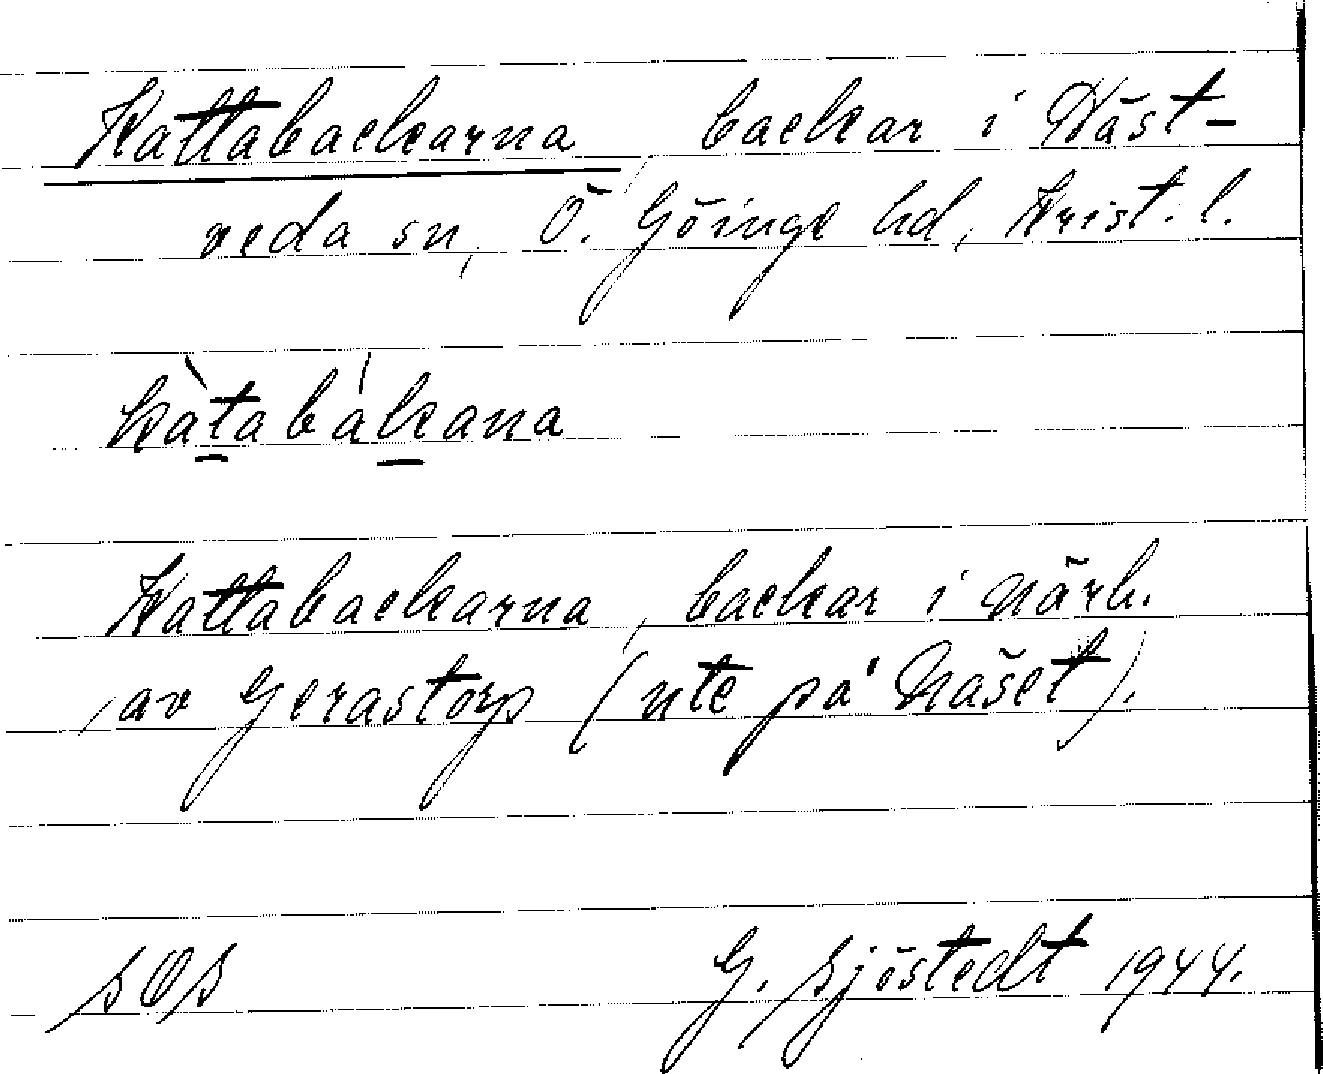 Kattabackarna, backar i Väst-
veda sn, Ö. Göinge hd, Krist. l.
kàtabákana
Kattabackarna, backar i närh.
av Gerastorp (ute på Näset).
SOS G. Sjöstedt 1944.